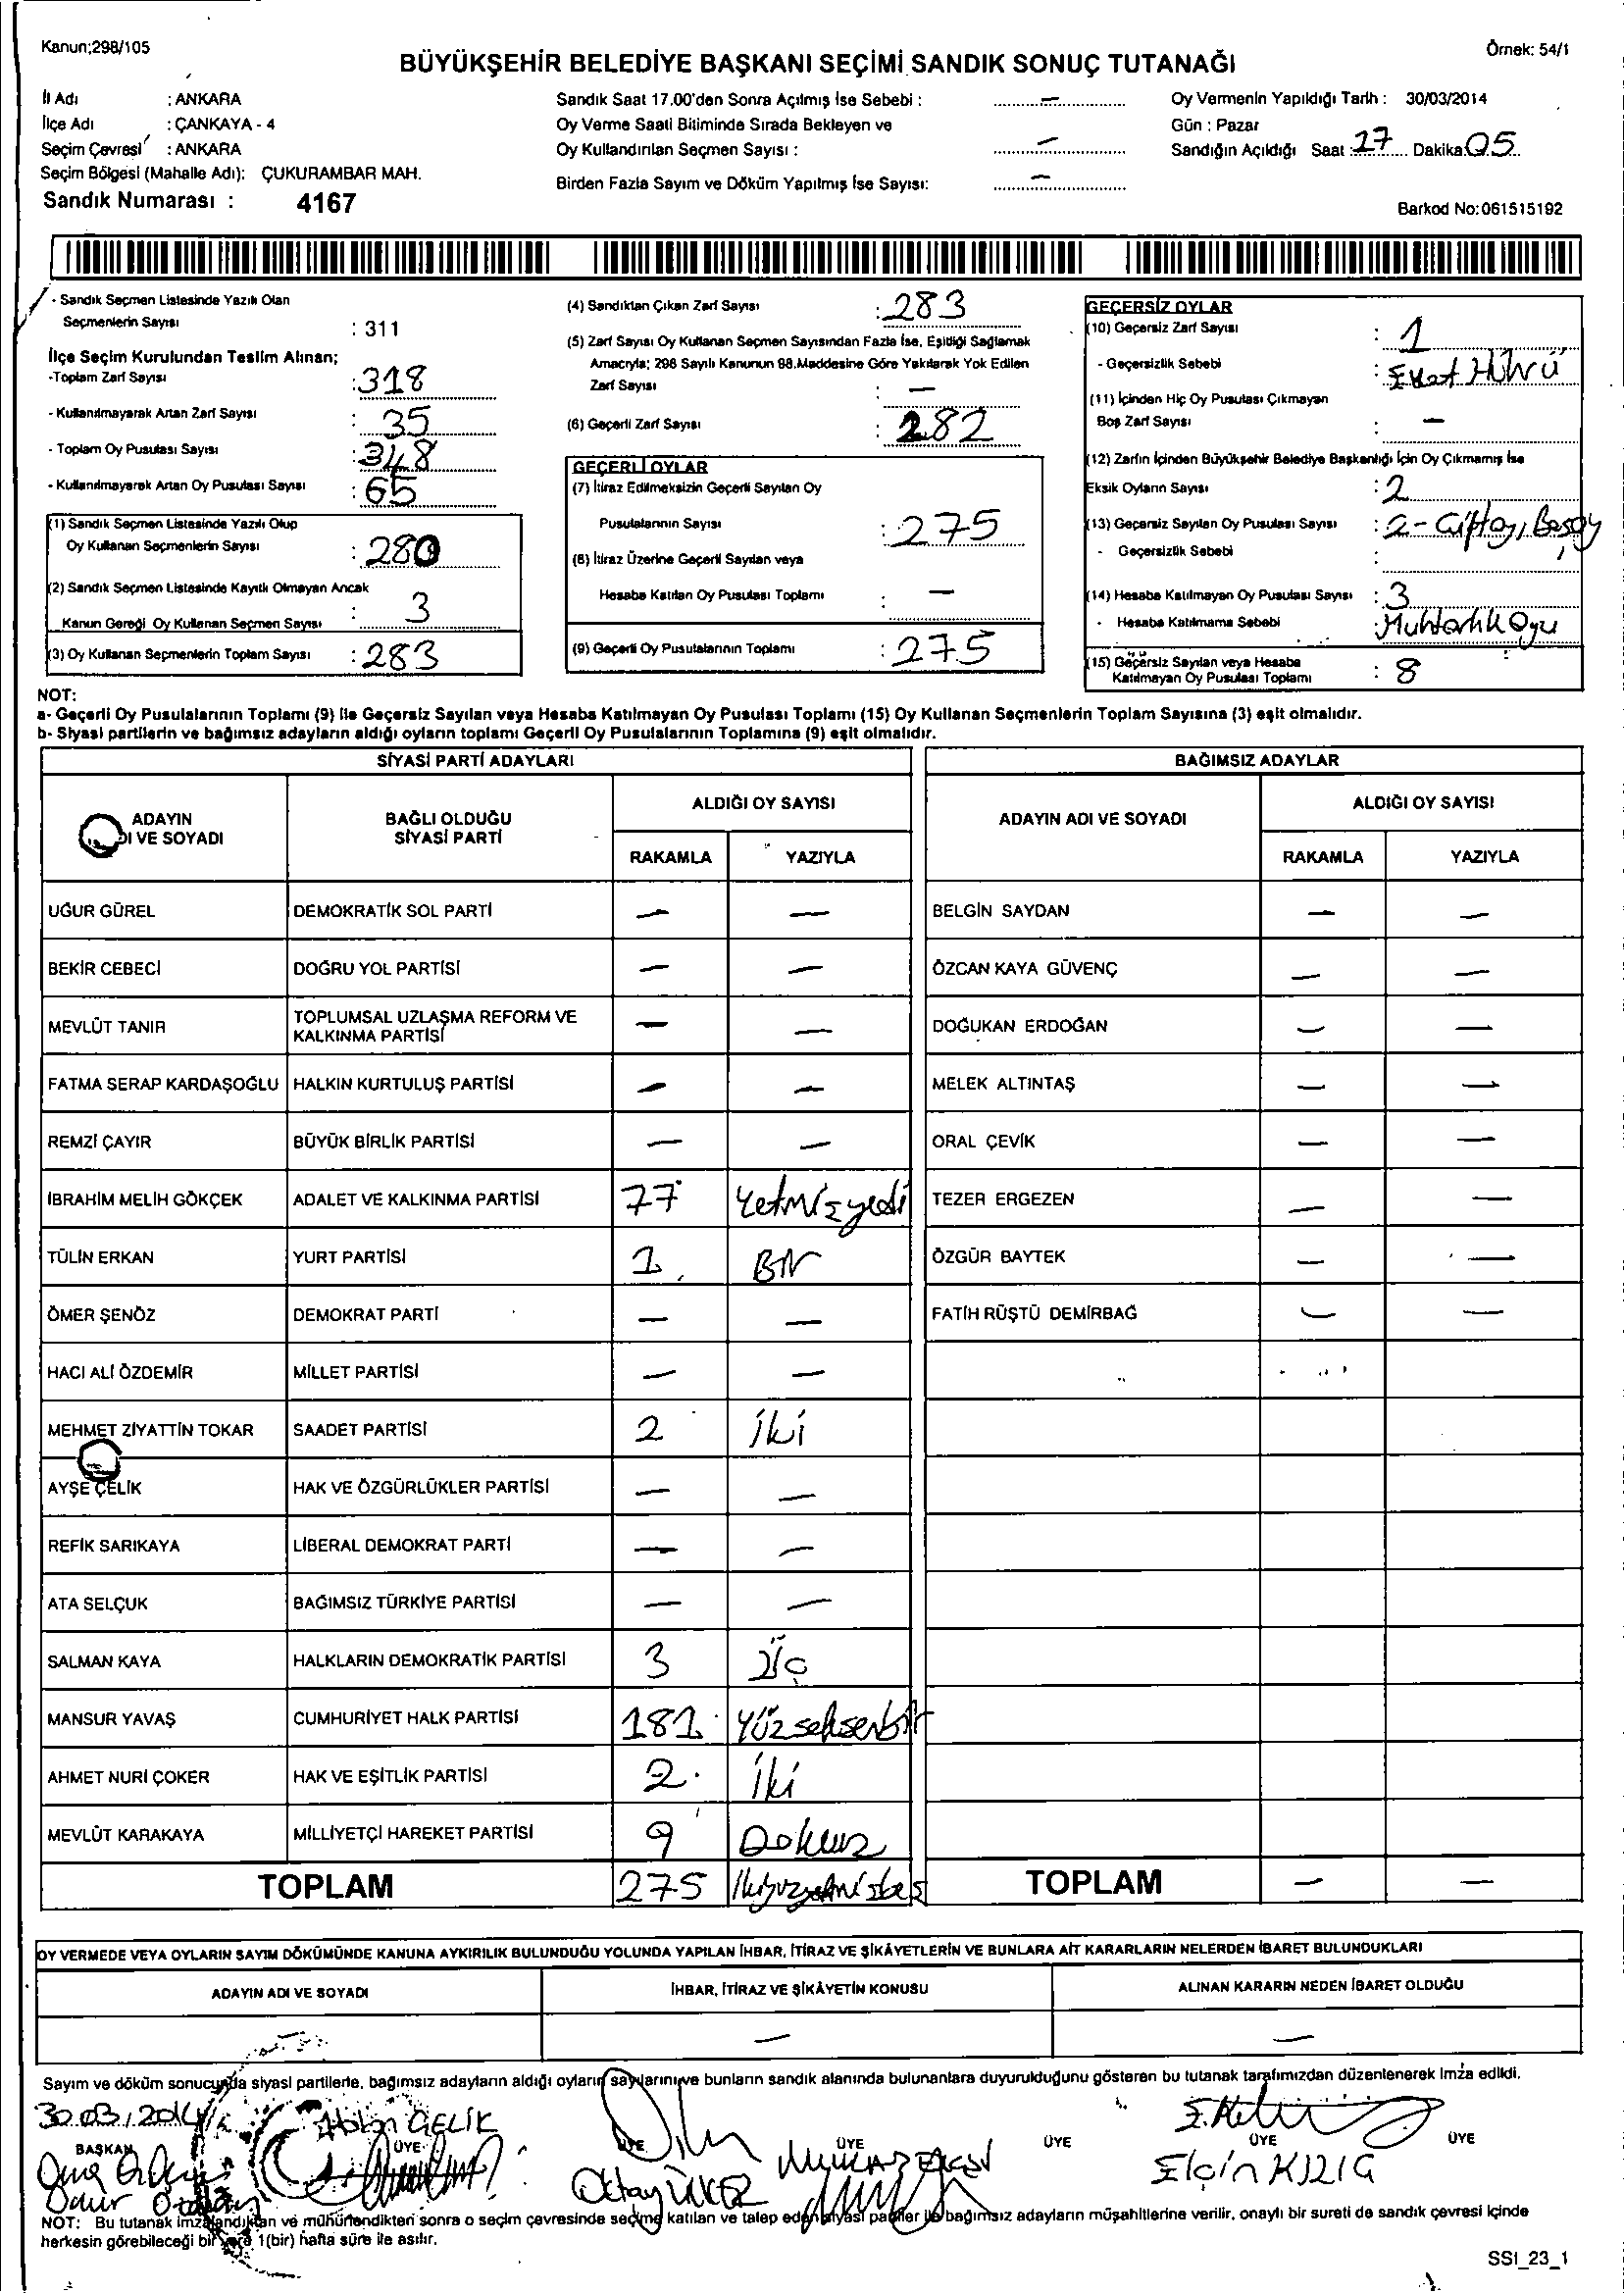 Kanun;298/105
Örnek: 54/1
BÜYÜKŞEHİR BELEDİYE BAŞKANI SEÇİMİ SANDIK SONUÇ TUTANAĞI
İl Adı : ANKARA
İlçe Adı : ÇANKAYA - 4
Seçim Çevresi : ANKARA
Seçim Bölgesi (Mahalle Adı): ÇUKURAMBAR MAH.
Sandık Numarası : 4167
Sandık Saat 17.00'den Sonra Açılmış İse Sebebi : —
Oy Verme Saati Bitiminde Sırada Bekleyen ve
Oy Kullandırılan Seçmen Sayısı : —
Birden Fazla Sayım ve Döküm Yapılmış İse Sayısı: —
Oy Vermenin Yapıldığı Tarih : 30/03/2014
Gün : Pazar
Sandığın Açıldığı Saat : 17 Dakika: 05
Barkod No:061515192
- Sandık Seçmen Listesinde Yazılı Olan
Seçmenlerin Sayısı : 311
İlçe Seçim Kurulundan Teslim Alınan;
-Toplam Zarf Sayısı : 318
- Kullanılmayarak Artan Zarf Sayısı : 35
- Toplam Oy Pusulası Sayısı : 348
- Kullanılmayarak Artan Oy Pusulası Sayısı : 65
(1) Sandık Seçmen Listesinde Yazılı Olup
Oy Kullanan Seçmenlerin Sayısı : 280
(2) Sandık Seçmen Listesinde Kayıtlı Olmayan Ancak
Kanun Gereği Oy Kullanan Seçmen Sayısı : 3
(3) Oy Kullanan Seçmenlerin Toplam Sayısı : 283
(4) Sandıktan Çıkan Zarf Sayısı : 283
(5) Zarf Sayısı Oy Kullanan Seçmen Sayısından Fazla İse, Eşitliği Sağlamak
Amacıyla; 298 Sayılı Kanunun 98.Maddesine Göre Yakılarak Yok Edilen
Zarf Sayısı : —
(6) Geçerli Zarf Sayısı : 282
GEÇERLİ OYLAR
(7) İtiraz Edilmeksizin Geçerli Sayılan Oy
Pusulalarının Sayısı : 275
(8) İtiraz Üzerine Geçerli Sayılan veya
Hesaba Katılan Oy Pusulası Toplamı : —
(9) Geçerli Oy Pusulalarının Toplamı : 275
GEÇERSİZ OYLAR
(10) Geçersiz Zarf Sayısı : 1
- Geçersizlik Sebebi : Evet Mührü
(11) İçinden Hiç Oy Pusulası Çıkmayan
Boş Zarf Sayısı : —
(12) Zarfın İçinden Büyükşehir Belediye Başkanlığı İçin Oy Çıkmamış İse
Eksik Oyların Sayısı : 2
(13) Geçersiz Sayılan Oy Pusulası Sayısı : 2- Çift oy, Boş oy
- Geçersizlik Sebebi :
(14) Hesaba Katılmayan Oy Pusulası Sayısı : 3
- Hesaba Katılmama Sebebi : Muhtarlık Oyu
(15) Geçersiz Sayılan veya Hesaba
Katılmayan Oy Pusulası Toplamı : 8
NOT:
a- Geçerli Oy Pusulalarının Toplamı (9) ile Geçersiz Sayılan veya Hesaba Katılmayan Oy Pusulası Toplamı (15) Oy Kullanan Seçmenlerin Toplam Sayısına (3) eşit olmalıdır.
b- Siyasi partilerin ve bağımsız adayların aldığı oyların toplamı Geçerli Oy Pusulalarının Toplamına (9) eşit olmalıdır.
SİYASİ PARTİ ADAYLARI BAĞIMSIZ ADAYLAR
ADAYIN DI VE SOYADI BAĞLI OLDUĞU SİYASİ PARTİ ALDIĞI OY SAYISI ADAYIN ADI VE SOYADI ALDIĞI OY SAYISI
RAKAMLA YAZIYLA RAKAMLA YAZIYLA
UĞUR GÜREL DEMOKRATİK SOL PARTİ — — BELGİN SAYDAN — —
BEKİR CEBECİ DOĞRU YOL PARTİSİ — — ÖZCAN KAYA GÜVENÇ — —
MEVLÜT TANIR TOPLUMSAL UZLAŞMA REFORM VE KALKINMA PARTİSİ — — DOĞUKAN ERDOĞAN — —
FATMA SERAP KARDAŞOĞLU HALKIN KURTULUŞ PARTİSİ — — MELEK ALTINTAŞ — —
REMZİ ÇAYIR BÜYÜK BİRLİK PARTİSİ — — ORAL ÇEVİK — —
İBRAHİM MELİH GÖKÇEK ADALET VE KALKINMA PARTİSİ 77 Yetmişyedi TEZER ERGEZEN — —
TÜLİN ERKAN YURT PARTİSİ 1 BİR ÖZGÜR BAYTEK — —
ÖMER ŞENÖZ DEMOKRAT PARTİ — — FATİH RÜŞTÜ DEMİRBAĞ — —
HACI ALİ ÖZDEMİR MİLLET PARTİSİ — —
MEHMET ZİYATTİN TOKAR SAADET PARTİSİ 2 İki
AYŞE ÇELİK HAK VE ÖZGÜRLÜKLER PARTİSİ — —
REFİK SARIKAYA LİBERAL DEMOKRAT PARTİ — —
ATA SELÇUK BAĞIMSIZ TÜRKİYE PARTİSİ — —
SALMAN KAYA HALKLARIN DEMOKRATİK PARTİSİ 3 Üç
MANSUR YAVAŞ CUMHURİYET HALK PARTİSİ 181 Yüzseksenbir
AHMET NURİ ÇOKER HAK VE EŞİTLİK PARTİSİ 2 İki
MEVLÜT KARAKAYA MİLLİYETÇİ HAREKET PARTİSİ 9 Dokuz
TOPLAM 275 İkiyüzyetmişbeş TOPLAM — —
OY VERMEDE VEYA OYLARIN SAYIM DÖKÜMÜNDE KANUNA AYKIRILIK BULUNDUĞU YOLUNDA YAPILAN İHBAR, İTİRAZ VE ŞİKÂYETLERİN VE BUNLARA AİT KARARLARIN NELERDEN İBARET BULUNDUKLARI
ADAYIN ADI VE SOYADI İHBAR, İTİRAZ VE ŞİKÂYETİN KONUSU ALINAN KARARIN NEDEN İBARET OLDUĞU
— — —
Sayım ve döküm sonucunda siyasi partilerle, bağımsız adayların aldığı oyların sayılarını ve bunların sandık alanında bulunanlara duyurulduğunu gösteren bu tutanak tarafımızdan düzenlenerek imza edildi.
30.03.2014
ÇELİK
BAŞKAN ÜYE ÜYE ÜYE ÜYE ÜYE ÜYE
Onur
Oktay ÜLKER
Elçin KIZIG
NOT: Bu tutanak imzalandıktan ve mühürlendikten sonra o seçim çevresinde seçime katılan ve talep eden siyasi partiler ile bağımsız adayların müşahitlerine verilir, onaylı bir sureti de sandık çevresi içinde
herkesin görebileceği bir yere 1(bir) hafta süre ile asılır.
SSI_23_1